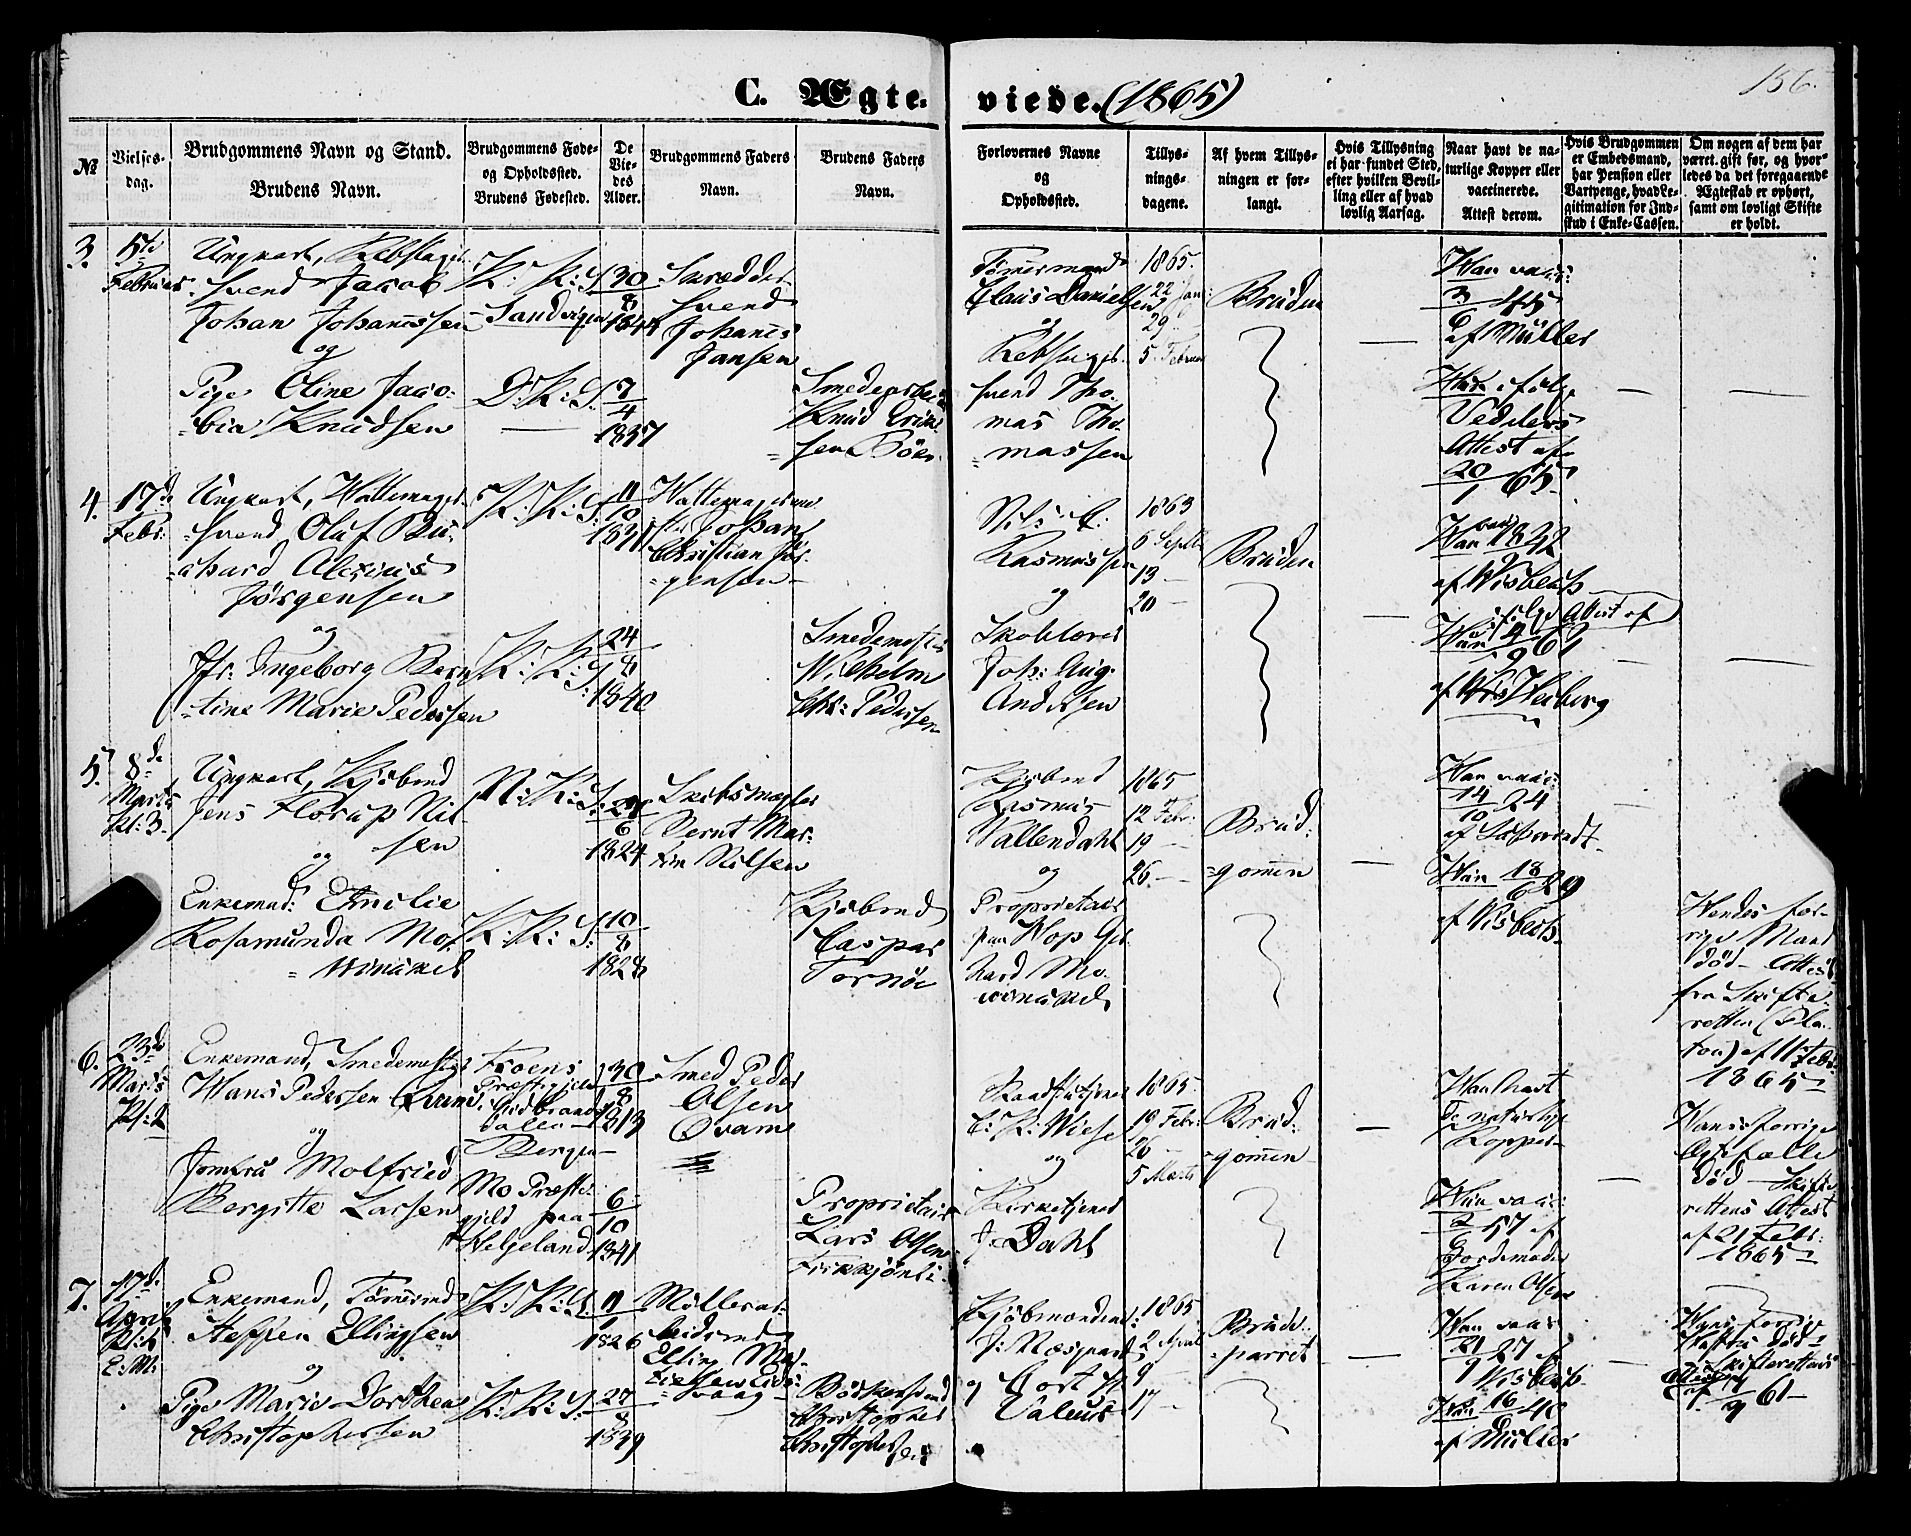 C. Ægte-
viede. (1865)
156.
№
Vielses-
dag.
Brudgommens Navn og Stand.
Brudens Navn.
Brudgommens Føde-
og Opholdssted.
Brudens Fødested.
De
Vie-
des
Alder.
Brudgommens Faders
Navn.
Brudens Faders
Navn.
Forlovernes Navne
og
Opholdssted.
Tillys-
nings-
dagene.
Af hvem Tillys-
ningen er for-
langt.
Hvis Tillysning
ei har fundet Sted,
efter hvilken Bevil-
ling eller af hvad
lovlig Aarsag.
Naar havt de na-
turlige Kopper eller
vaccinerede.
Attest derom.
Hvis Brudgommen
er Embedsmand,
har Pension eller
Vartpenge, hvad Le-
gitimation for Ind-
skud i Enke-Cassen.
Om nogen af dem har
været gift før, og hvor-
ledes da det foregaaende
Ægteskab er ophørt,
samt om lovligt Skifte
er holdt.
3.
5te
Februar
Ungkarl, Rebslager
svend Jacob
Johan Johannssen
og
Pige Oline Jaco-
bia Knudsen
K. K. S.
Sandvigen
D. K. S.
30
8
1844
7
4
1837
Skrædder
svend
Johans
Jansen
Smedearbeid
Knud Erik-
sen Böe
Tömmermand
Claus Danielsen
og
Rebslager
svend Tho-
mas Tho-
massen
1865.
22 Jan:
29
5 Februar
Bruden
Han vacc:
3
6 45
af Müller
Hun ifølge
Vedelers
Attest af
20
1 65
4.
17de
Febr:
Ungkarl,
svend Oluf Ri-
chard Alexius
Jörgensen
og
Jfr: Ingeborg Bern-
tine Marie Pedersen
K. K. S.
K. K. S.
11
10
24
8
1840
Johan
Christian Jör-
gensen
Smedemester
Wilhelm
Chr: Pedersen
Nils C:
Rasmussen
og
Skoelærer
Joh: Aug:
Andersen
1863
6 Septb
13 —
20 —
Bruden
Han vac 1842
9
af Wisbech
Hun ifølge Attest af
9 61
af Weiberg
5.
8de
Marts
Kl: 3
Ungkarl, Kjøbmd
Jens Florup Nil-
sen
og
Enkemad: Emilie
Rosamunda Mo-
winckel
N. K. S.
K. K. S.
6
1824
10
8
1828
Skibsmægler
Bernt Mar-
tin Nilsen
Kjøbmd
Caspar
Tornöe
Kjøbmd
Rasmus
Wallendahl
og
Proprietair
paa Hop Ger-
hard Mo-
winckel
1865
12 Febr:
19 —
26 —
Brud-
gommen
Han vacc:
14
10 24
Hun 18
6 29
af Wisbech
Hendes for-
rige Mand
död — Attest
fra Skifte-
retten (Pla-
tou) af 11te Febr
1865
6.
23de
Marts
Kl: 2
Enkemand, Smedemester
Hans Pedersen Qvam
og
Jomfru Molfried
Bergitte Larsen
Froens
Præstegjeld
i Gudbrands-
dalen —
Bergen
Mo Præste-
gjeld paa
Helgeland
30
8
1813
6
10
1841
Smed Peder
Olsen
Qvam
Proprietair
Lars Olsen
C: K: Wiese
og
Kirketjener
J: Dahl
1865.
19 Febr:
26 —
5 Marts
Brud-
gommen
Han havt
de naturlige
Kopper
Hun vacc:
2
6 57 af
Jordemoder
Karen Olsen
Hans forrige
Ægtefælle
död — Skifte-
rettens Attest
af 21 Febr:
1865
7.
17de
April
Kl: 4
E: M:
Enkemand, Tømmermd
Steffen Ellingsen
og
Pige Marie Dorthea
Christophersen
K. K. S.
K. K. S.
11
9
1826
27
8
1839
Møllerar-
beidsmd
Elling
Bødkersvend
Christopher
Christophersen
Kjøbmændene:
J: Næsgaard
og Cort H
Valeur
1865
2 April
9 —
17 —
Brude-
parret
Han vacc
21
9 27 af
Wisbech
Hun 16
8 40
af Müller
Hans forrige
Hustru död —
Skifterettens
Attest
af
9 61 —